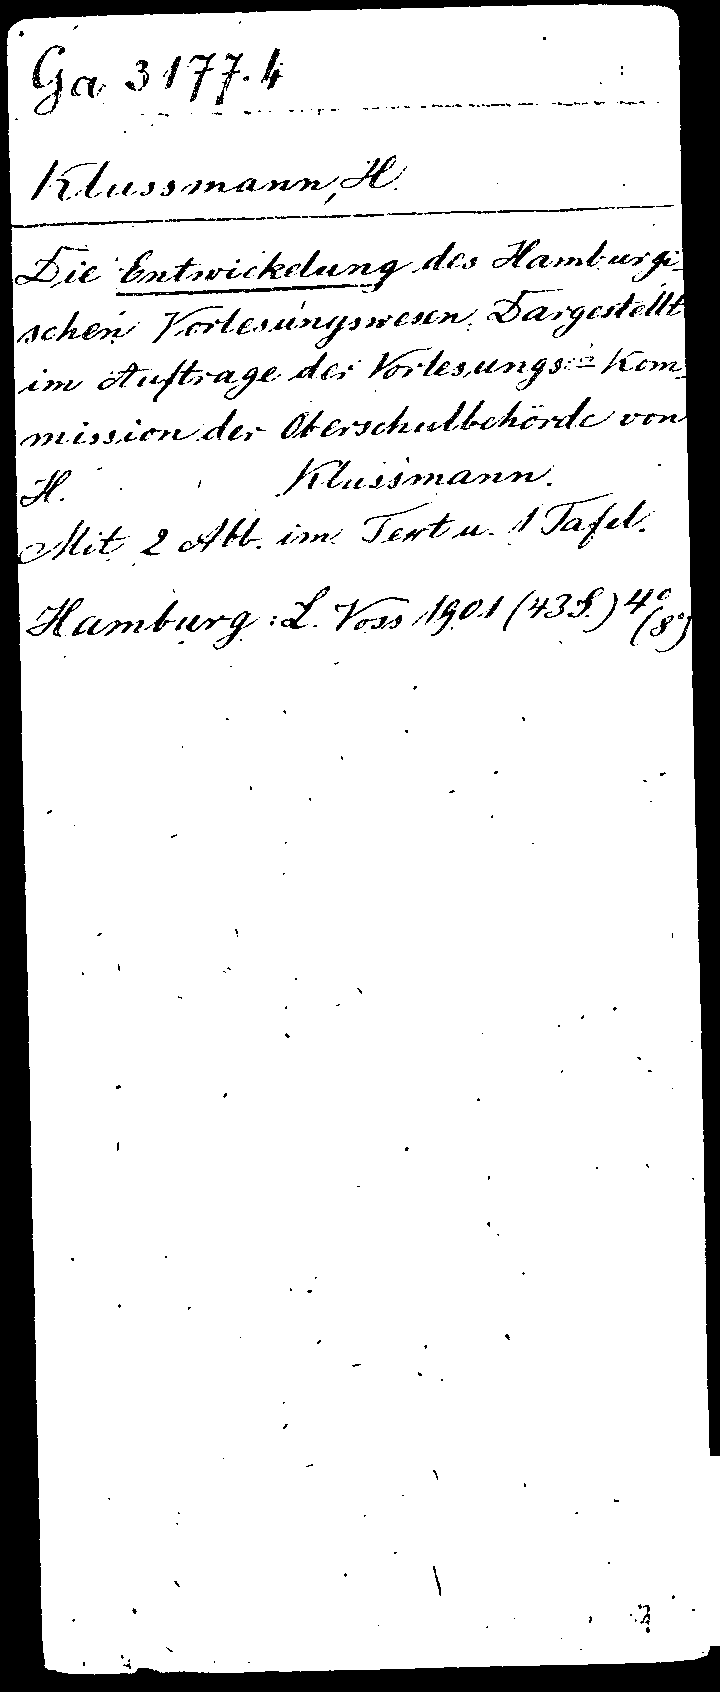 Ga 3177.4
Klussmann, H.
Die Entwickelung des Hamburgi-
schen Vorlesungswesen. Dargestellt
im Auftrage der Vorlesungs-Kom-
mission der Oberschulbehörde von
H. Klussmann.
Mit 2 Abb. im Text u. 1 Tafel.
Hamburg: L. Voss 1901 (43 S.) 4°
(8°)